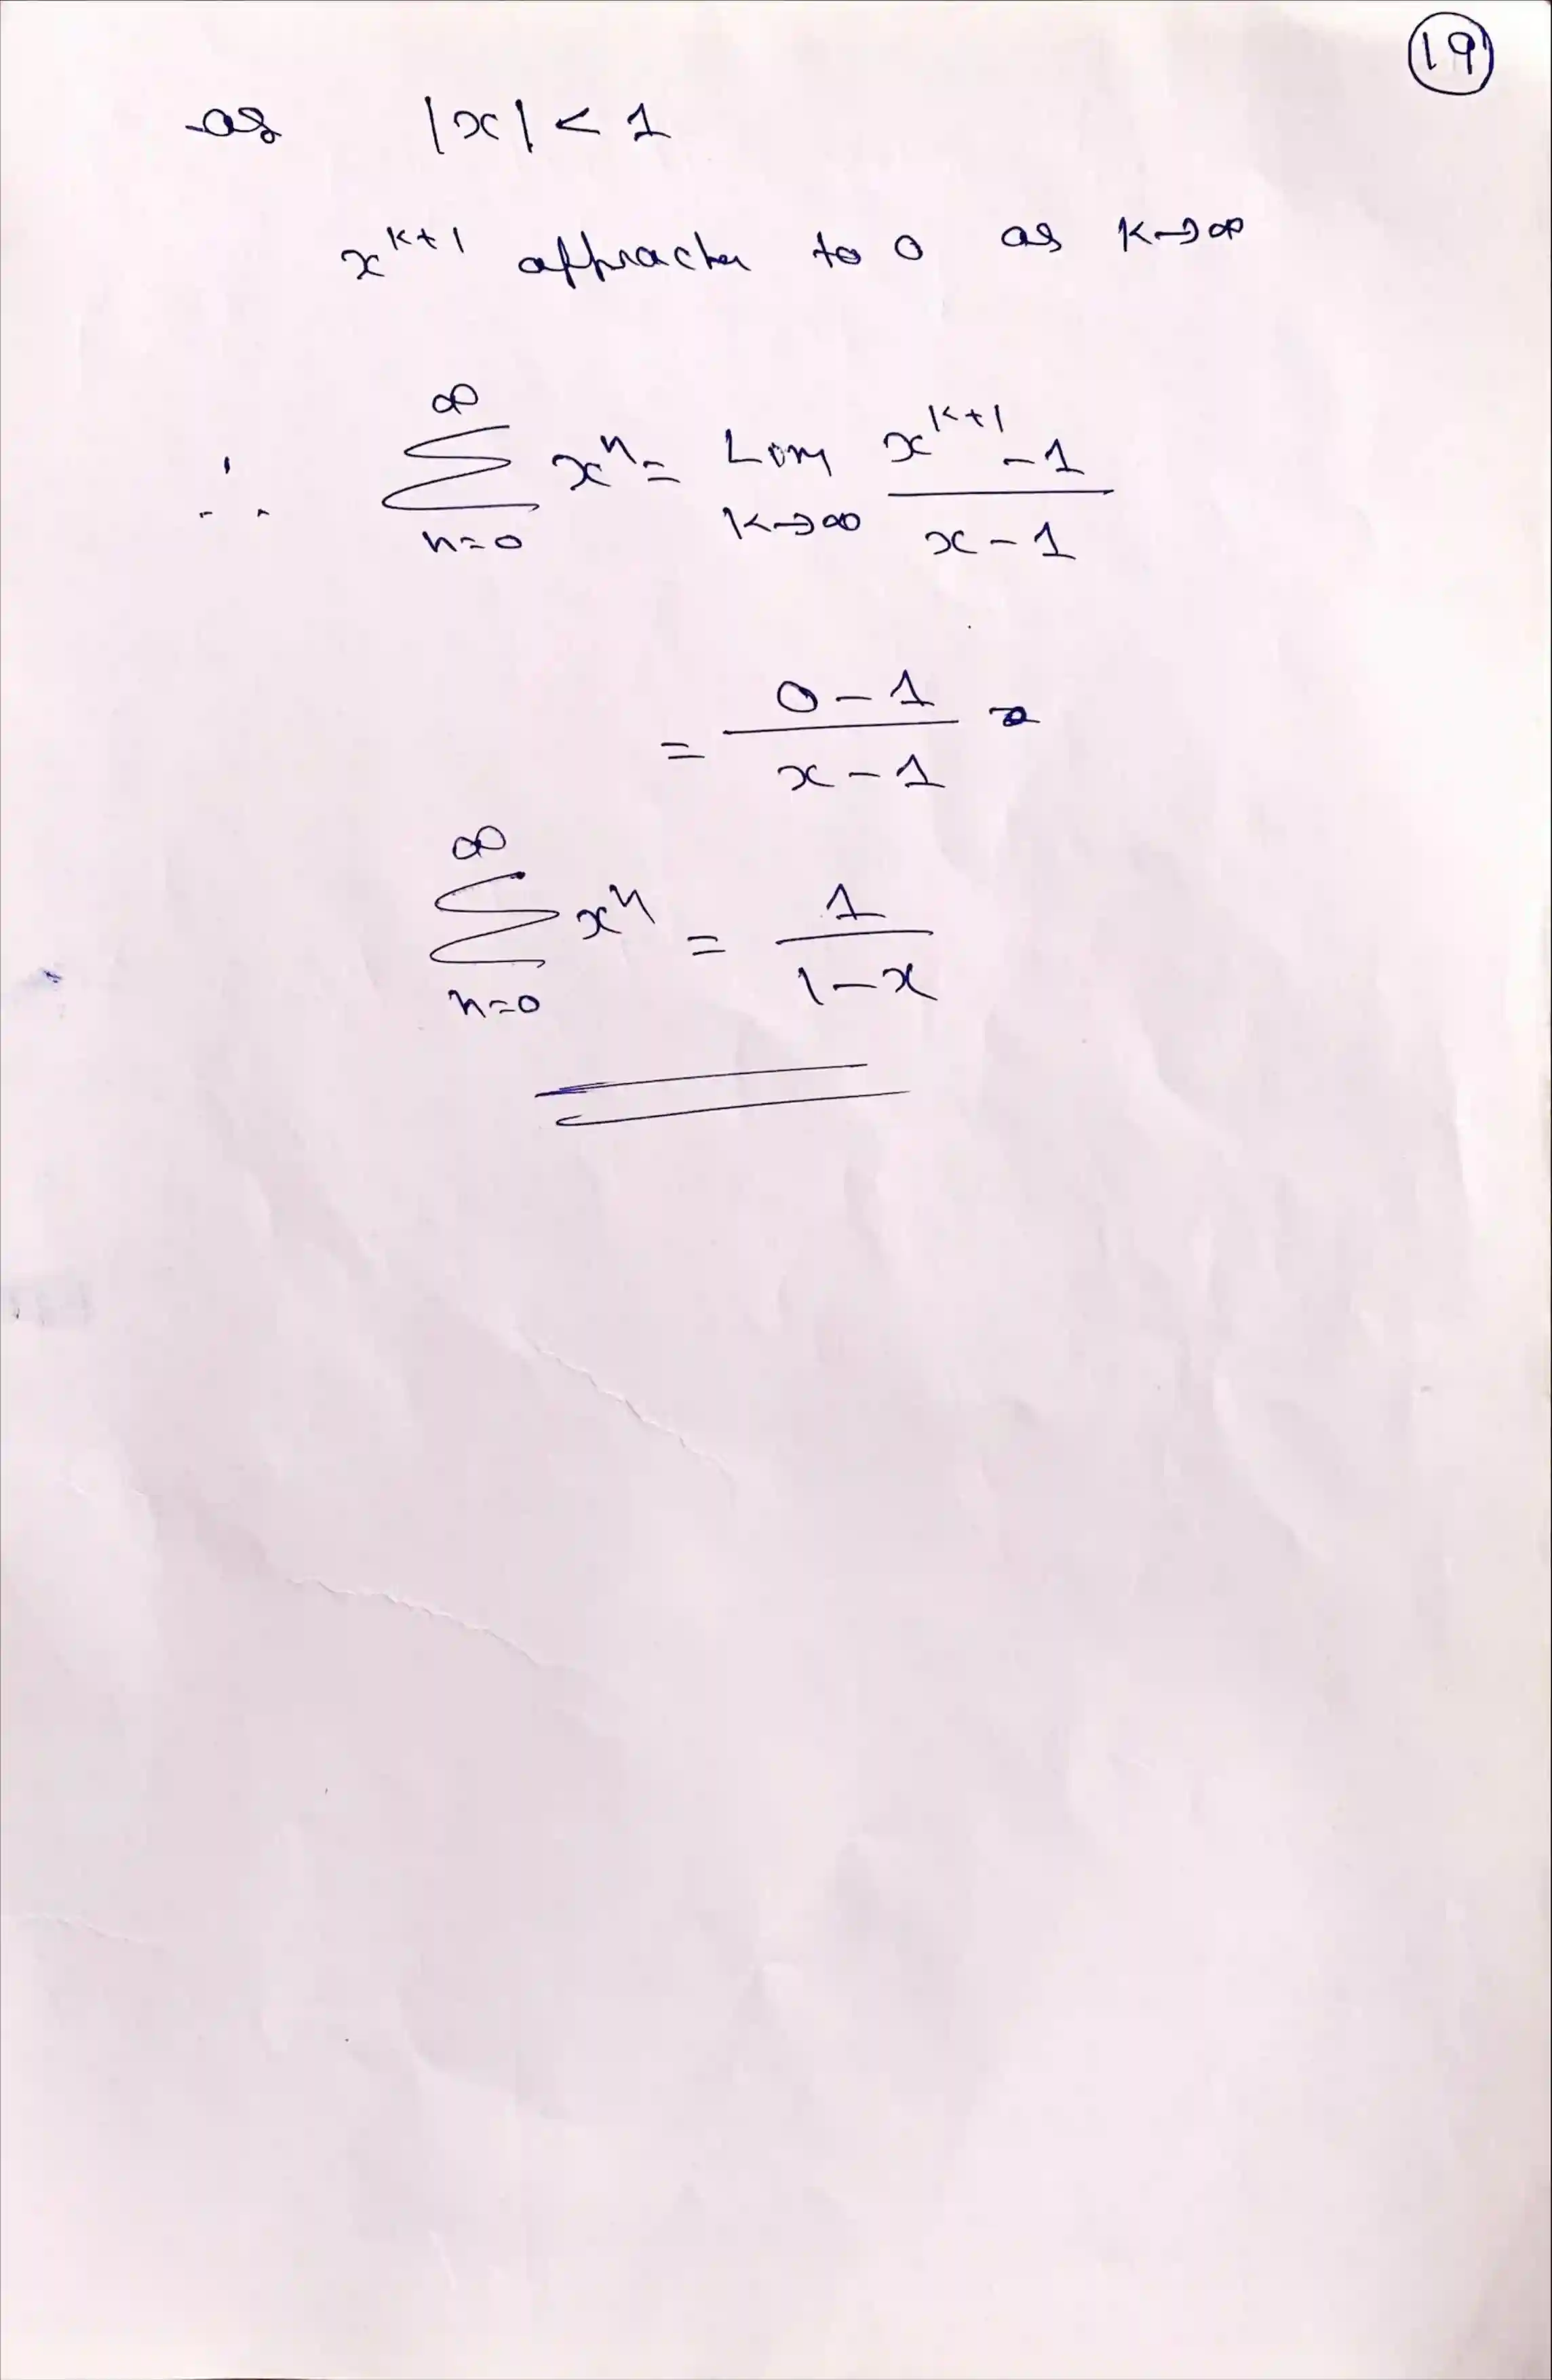 19
as |x| < 1
x^{k+1} approaches to 0 as k→∞
∴ \sum_{n=0}^{∞} x^n = Lim_{k→∞} \frac{x^{k+1} - 1}{x - 1}
= \frac{0 - 1}{x - 1}
\sum_{n=0}^{∞} x^n = \frac{1}{1 - x}